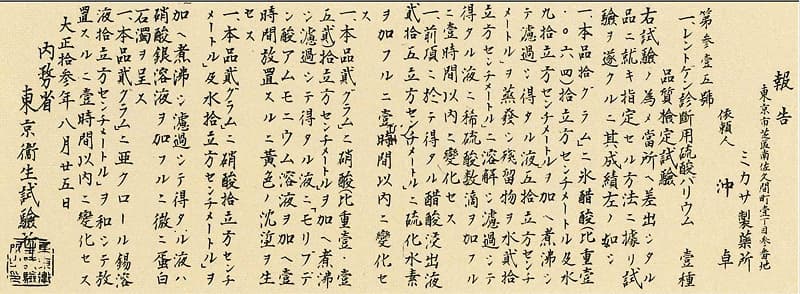 報告
東京市芝區南佐久間町壹丁目参番地
ミカサ製藥所
依頼人 沖卓
第参壹五號
一、レントゲン診断用硫酸バリウム 壹種
品質検定試験
右試験ノ為メ當所ヘ差出シタル
品ニ就キ指定セル方法ニ據リ試
験ヲ遂クルニ其成績左ノ如シ
一、本品拾グラムニ氷醋酸(比重壹
・〇六四)拾立方センチメートル及水
九拾立方センチメートルヲ加ヘ煮沸シ
テ濾過シ得タル液五拾立方センチ
メートルヲ蒸發シ残留物ヲ水貳拾
立方センチメートルニ溶解シ濾過シテ
得タル液ニ稀硫酸数滴ヲ加フル
ニ壹時間以内ニ變化セス
一、前項ニ於テ得タル醋酸浸出液
貳拾五立方センチメートルニ硫化水素
ヲ加フルニ壹時間以内ニ變化セ
ス
一、本品貳グラムニ硝酸(比重壹・壹
五)貳拾立方センチメートルヲ加ヘ煮沸
シ濾過シテ得タル液ニモリブデ
ン酸アムモニウム溶液ヲ加ヘ壹
時間放置スルニ黄色ノ沈澱ヲ生
セス
一、本品貳グラムニ硝酸拾立方センチ
メートル及水拾立方センチメートルヲ
加ヘ煮沸シ濾過シテ得タル液ハ
硝酸銀溶液ヲ加フルニ微ニ蛋白
石濁ヲ呈ス
一、本品貳グラムニ亜クロール錫溶
液拾立方センチメートルヲ和シテ放
置スルニ壹時間以内ニ變化セス
大正拾参年八月廿五日
内務省
東京衛生試験所